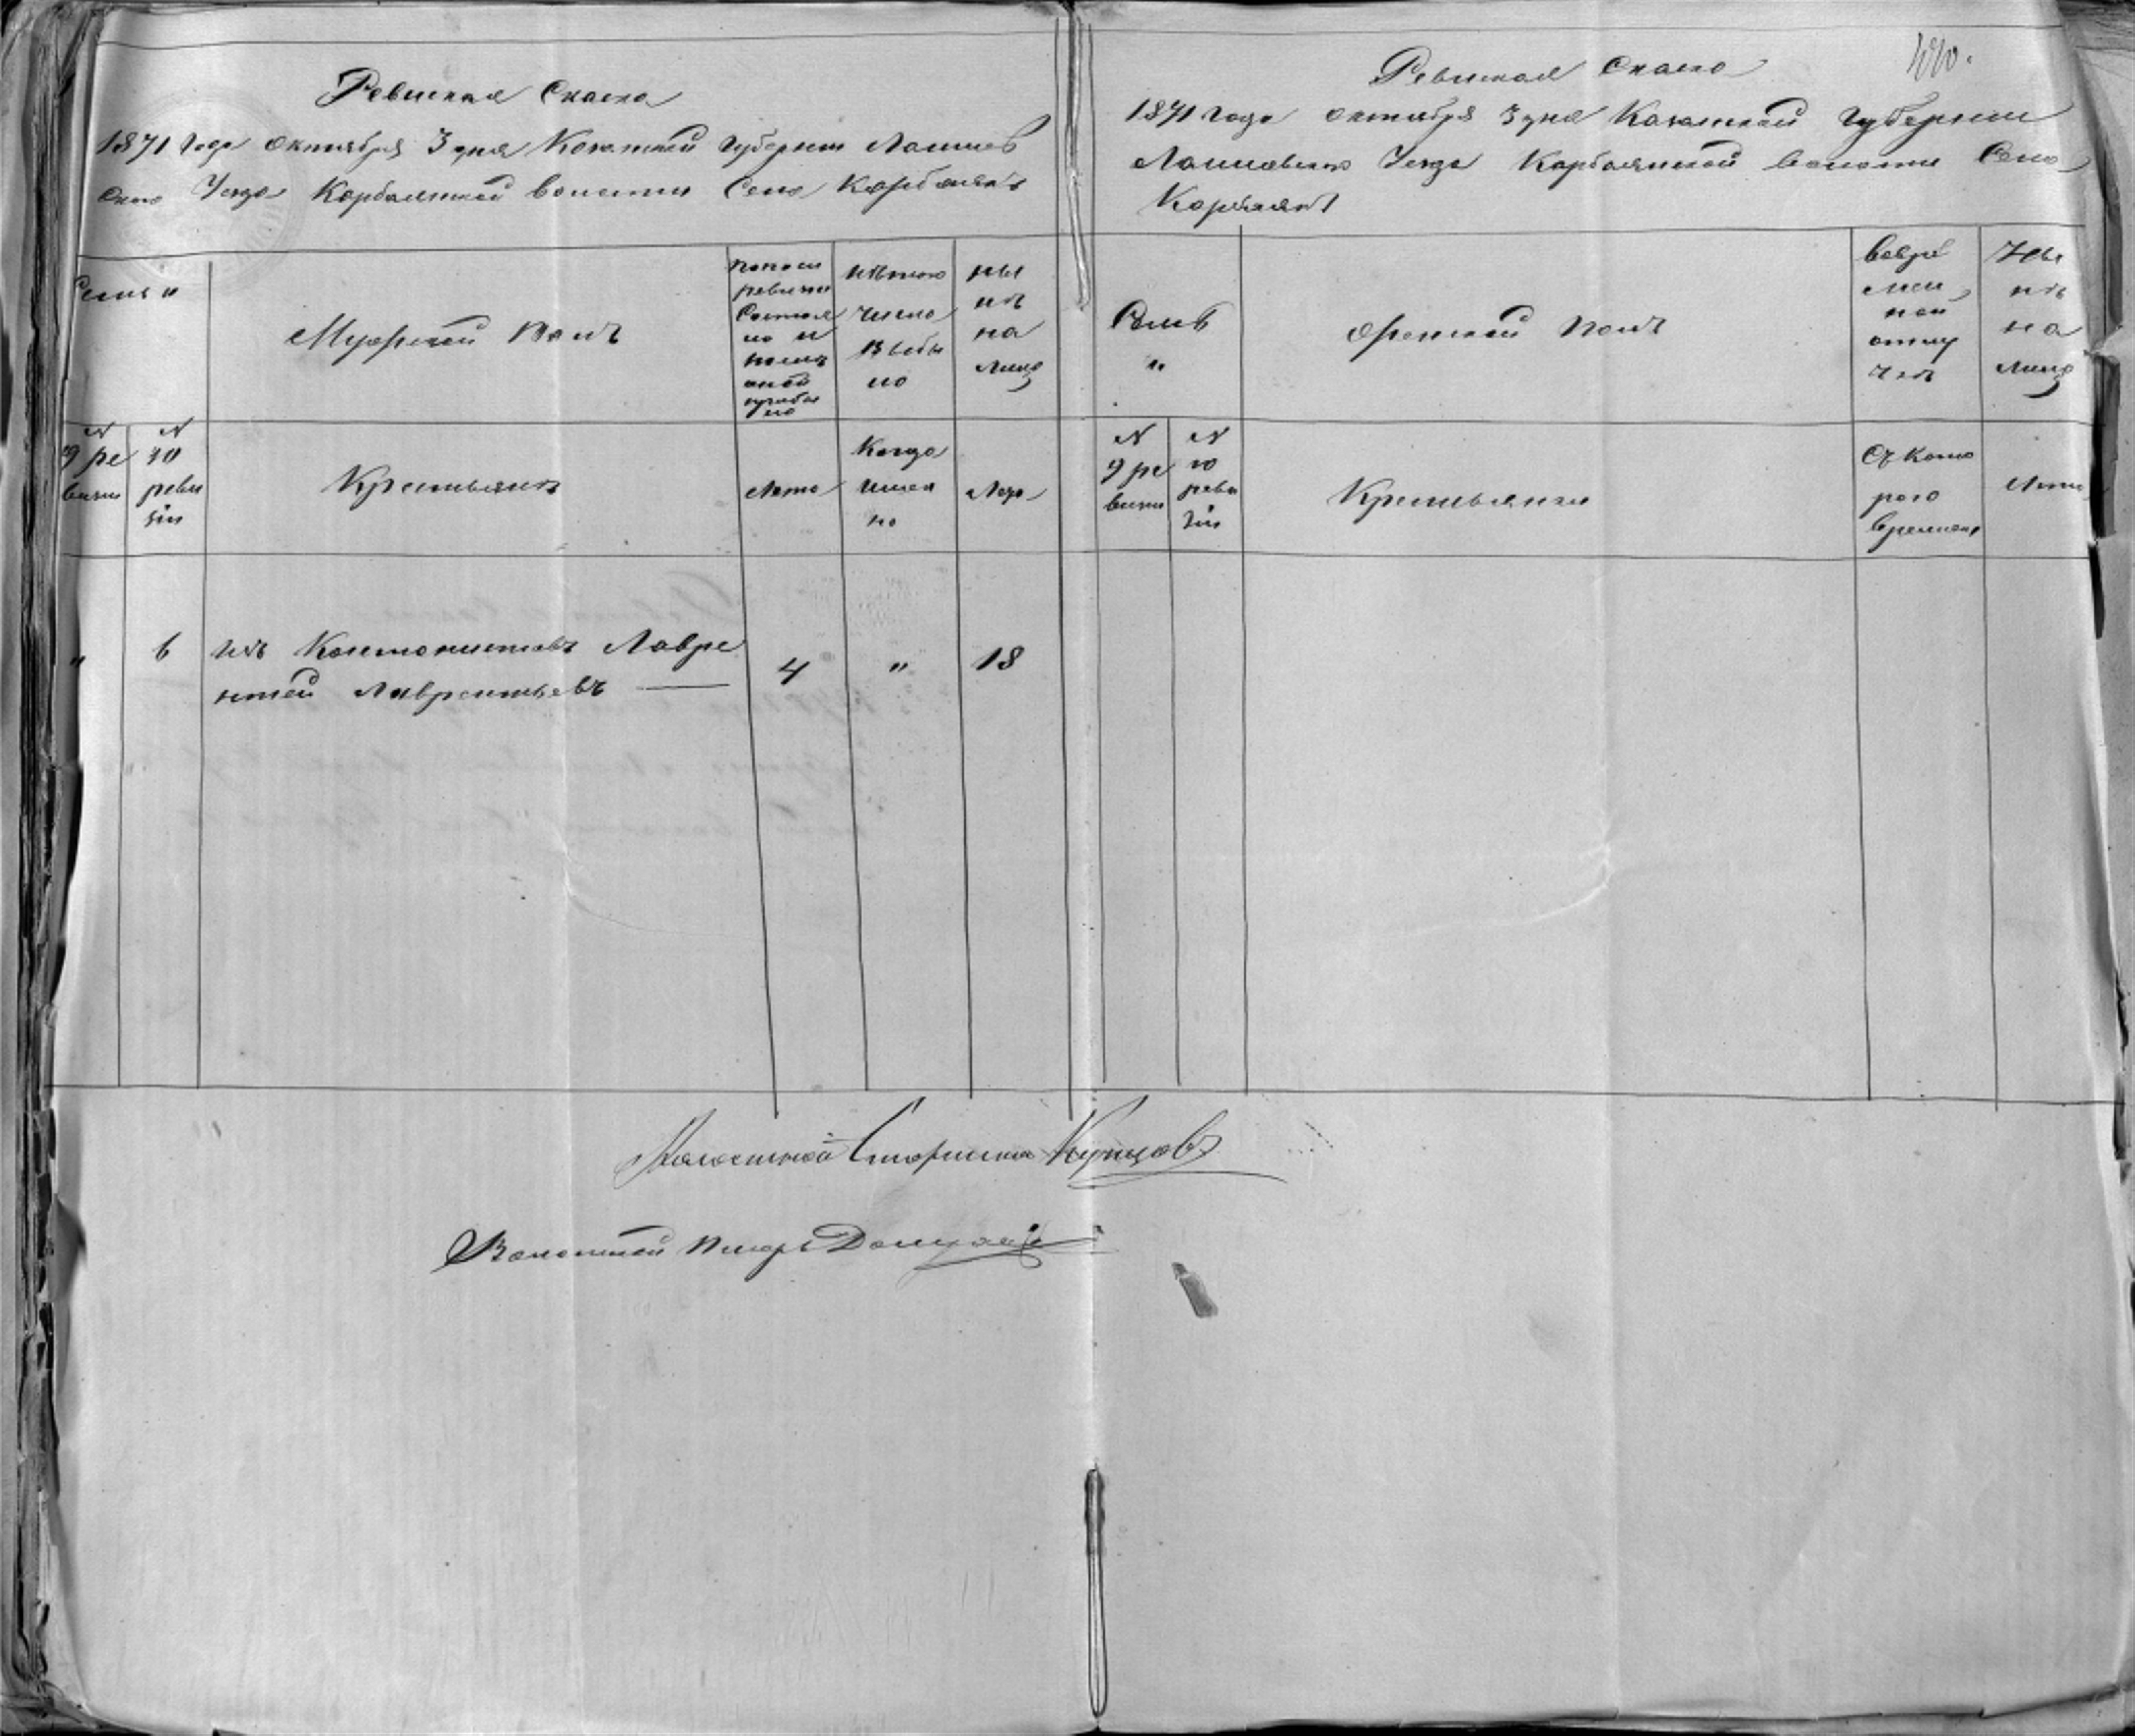 Ревиская Сказка
1871 года октября 3 дня Казанской Губернии Лаишев
скаго Уезда Карабаянской волости Село Карабаянъ
Семья
Мужеской Полъ
по 
ревизии
состоя
ло и
после
оной
прибы
ло
Изъ того
числа
выбы
ло
ны
нѣ
на
лицо
N
9 ре
визии
N
10
реви
зіи
Крестьянъ
Лета
Когда
имен
но
Лета
"
6
изъ Кантонистовъ Лавре
нтей Лаврентьевъ
4
"
18
440.
Ревиская Сказка
1871 года октября 3 дня Казанской Губернии
Лаишевскаго Уезда Карабаянской волости Село
Карабаянъ
Семья
Женской Полъ
Во вре
мен
ной
отлу
чке
Ны
нѣ
на
лицо
N
9 ре
визии
N
10
реви
зіи
Крестьянки
Съ кото
раго
времени
Лета
Волостной Старшина Купцовъ
Волостной Писарь